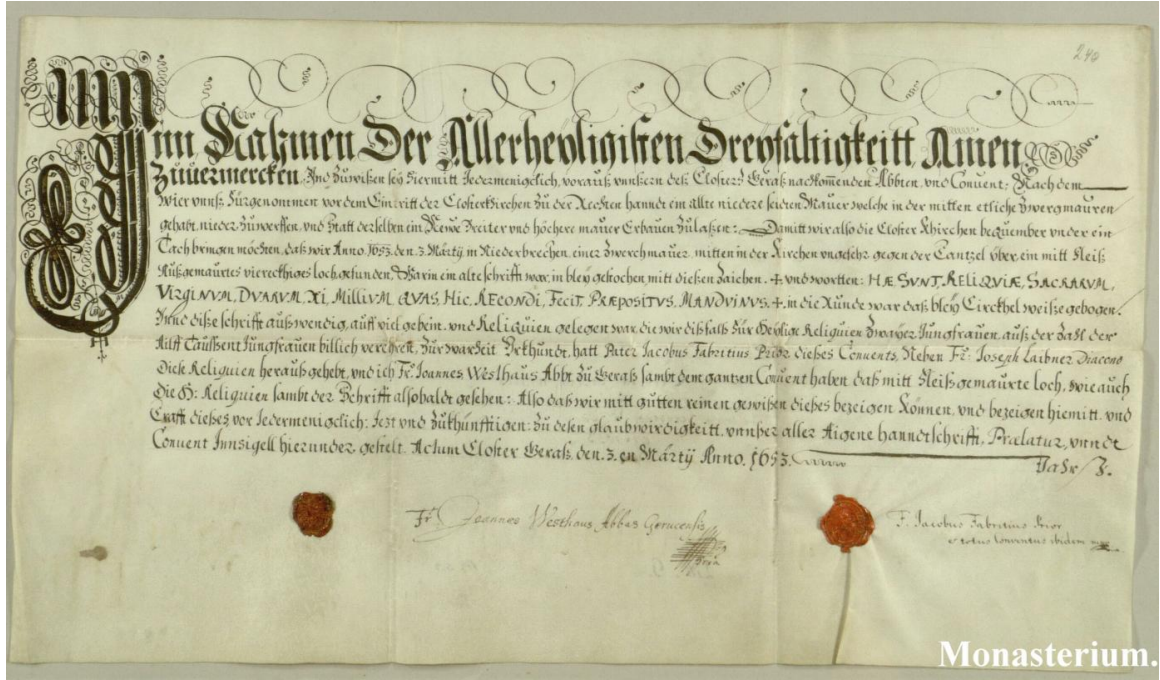 240
Im Nahmen Der Allerheyligisten Dreyfaltigkeitt Amen
Zuuermercken Vnd Zuwißen sey hiermitt Jedermenigelich, vorauß vnnßern deß Closterß Geraß nachkommenden Abbten vnd Conuent: Nach dem
Wier vnnß fürgenommen vor dem Eintritt der Closterkirchen Zu der Rechten handt ein allte niedere seiden Mauer welche in der mitten etliche Zwergmauren
gehabt, nieder Zuwerffen, vnd statt derselben ein Newe Breiter vnd höchere mauer Erbauen Zulaßen: Damitt wir also die Closter Khirchen bequember vnder ein
Tach bringen möchten, daß wir Anno 1653. den. 3. Martij in Niederbrechen, einer Zwerchmauer, mitten in der Kirchen vngefehr gegen der Cantzel vber, ein mitt fleiß
Außgemaurtes viereckhiges loch, gefunden, Warin ein alte schrifft war, in bley gestochen mitt dießen Zaichen. + vnd wortten: HÆ SVNT, RELIQVIÆ, SACRARVM,
VIRGINVM, DVARVM, XI, MILLIVM QVAS, HIC, RECONDI, FECIT, PRÆPOSITVS, MANDVINVS. + in die Runde war daß bley Circkhel weiße gebogen.
Vnnd diße schrifft außwendig, auff viel gebein, vnd Reliquien gelegen war, die wir dißfalß für heylige Reliquien Zwayer Jungfrauen, auß der Zahl der
Ailff Taußent Jungfrauen billich verehren, Zur warheit Vrkhundt, hatt Pater Jacobus Fabritius Prior dieses Conuents, Neben Fr: Joseph Laibner Diacono
Diese Reliquien heraußgehebt, vnd ich Fr: Joannes Westhaus Abbt Zu Geraß sambt dem gantzen Conuent haben daß mitt fleiß gemaurte loch, wie auch
Die H: Reliquien sambt der Schrifft alsobaldt gesehen: Also daß wir mitt gutten reinen gewißen dießes bezeigen Können, vnd bezeigen hiemitt, vnd
Crafft dieses vor Jedermenigelich: Jezt vnd Zukhünfftigen: Zu deßen glaubwirdigkeitt, vnnßer aller Aigene handtschrifft, Prælatur, vnndt
Conuent Innsigell hierunder, gestelt. Actum Closter Geraß, den. 3. en Martij Anno. 1653.
Fr. Joannes Westhaus Abbas Gerucensis
F. Jacobus Fabritius Prior
et totus Conventus ibidem
Monasterium.